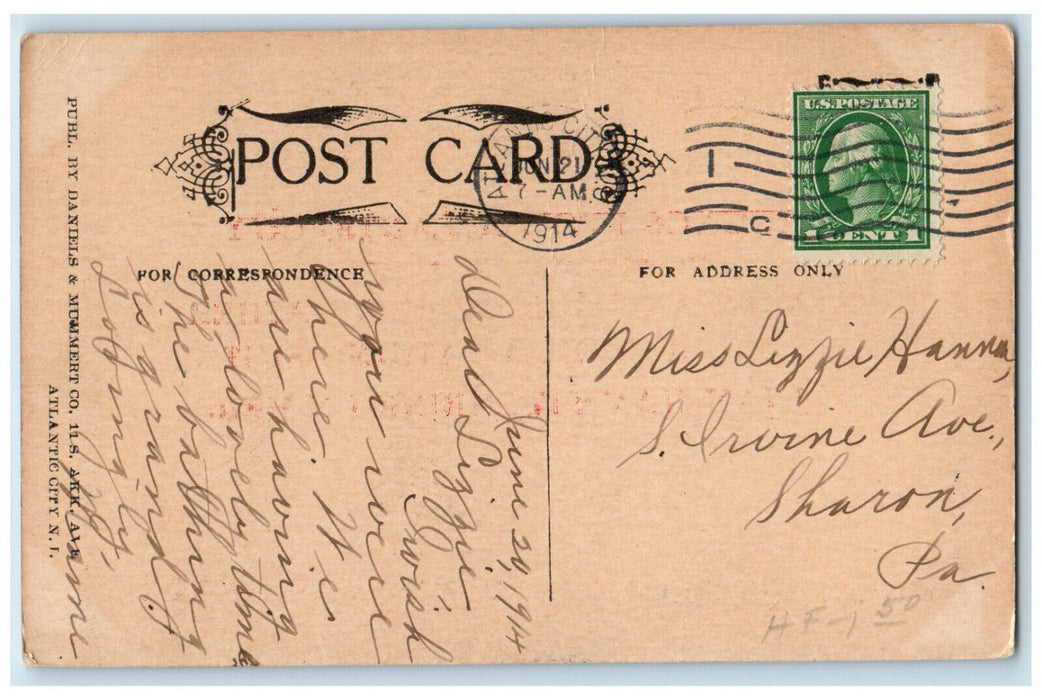 POST CARD
ATLANTIC CITY
JUN 21
7-AM
1914
1
C
U.S.POSTAGE
1 CENT 1
FOR CORRESPONDENCE
FOR ADDRESS ONLY
June 20, 1914
Dear Lizzie
I wish
you were
here. We
are having
a lovely time
the bathing
is grand
Lovingly,
Miss Lizzie Hanna,
S. Irvine Ave.,
Sharon,
Pa.
HF-1 50
PUBL. BY DANIELS & MUMMERT CO. 11 S. ARK. AVE
ATLANTIC CITY N.J.